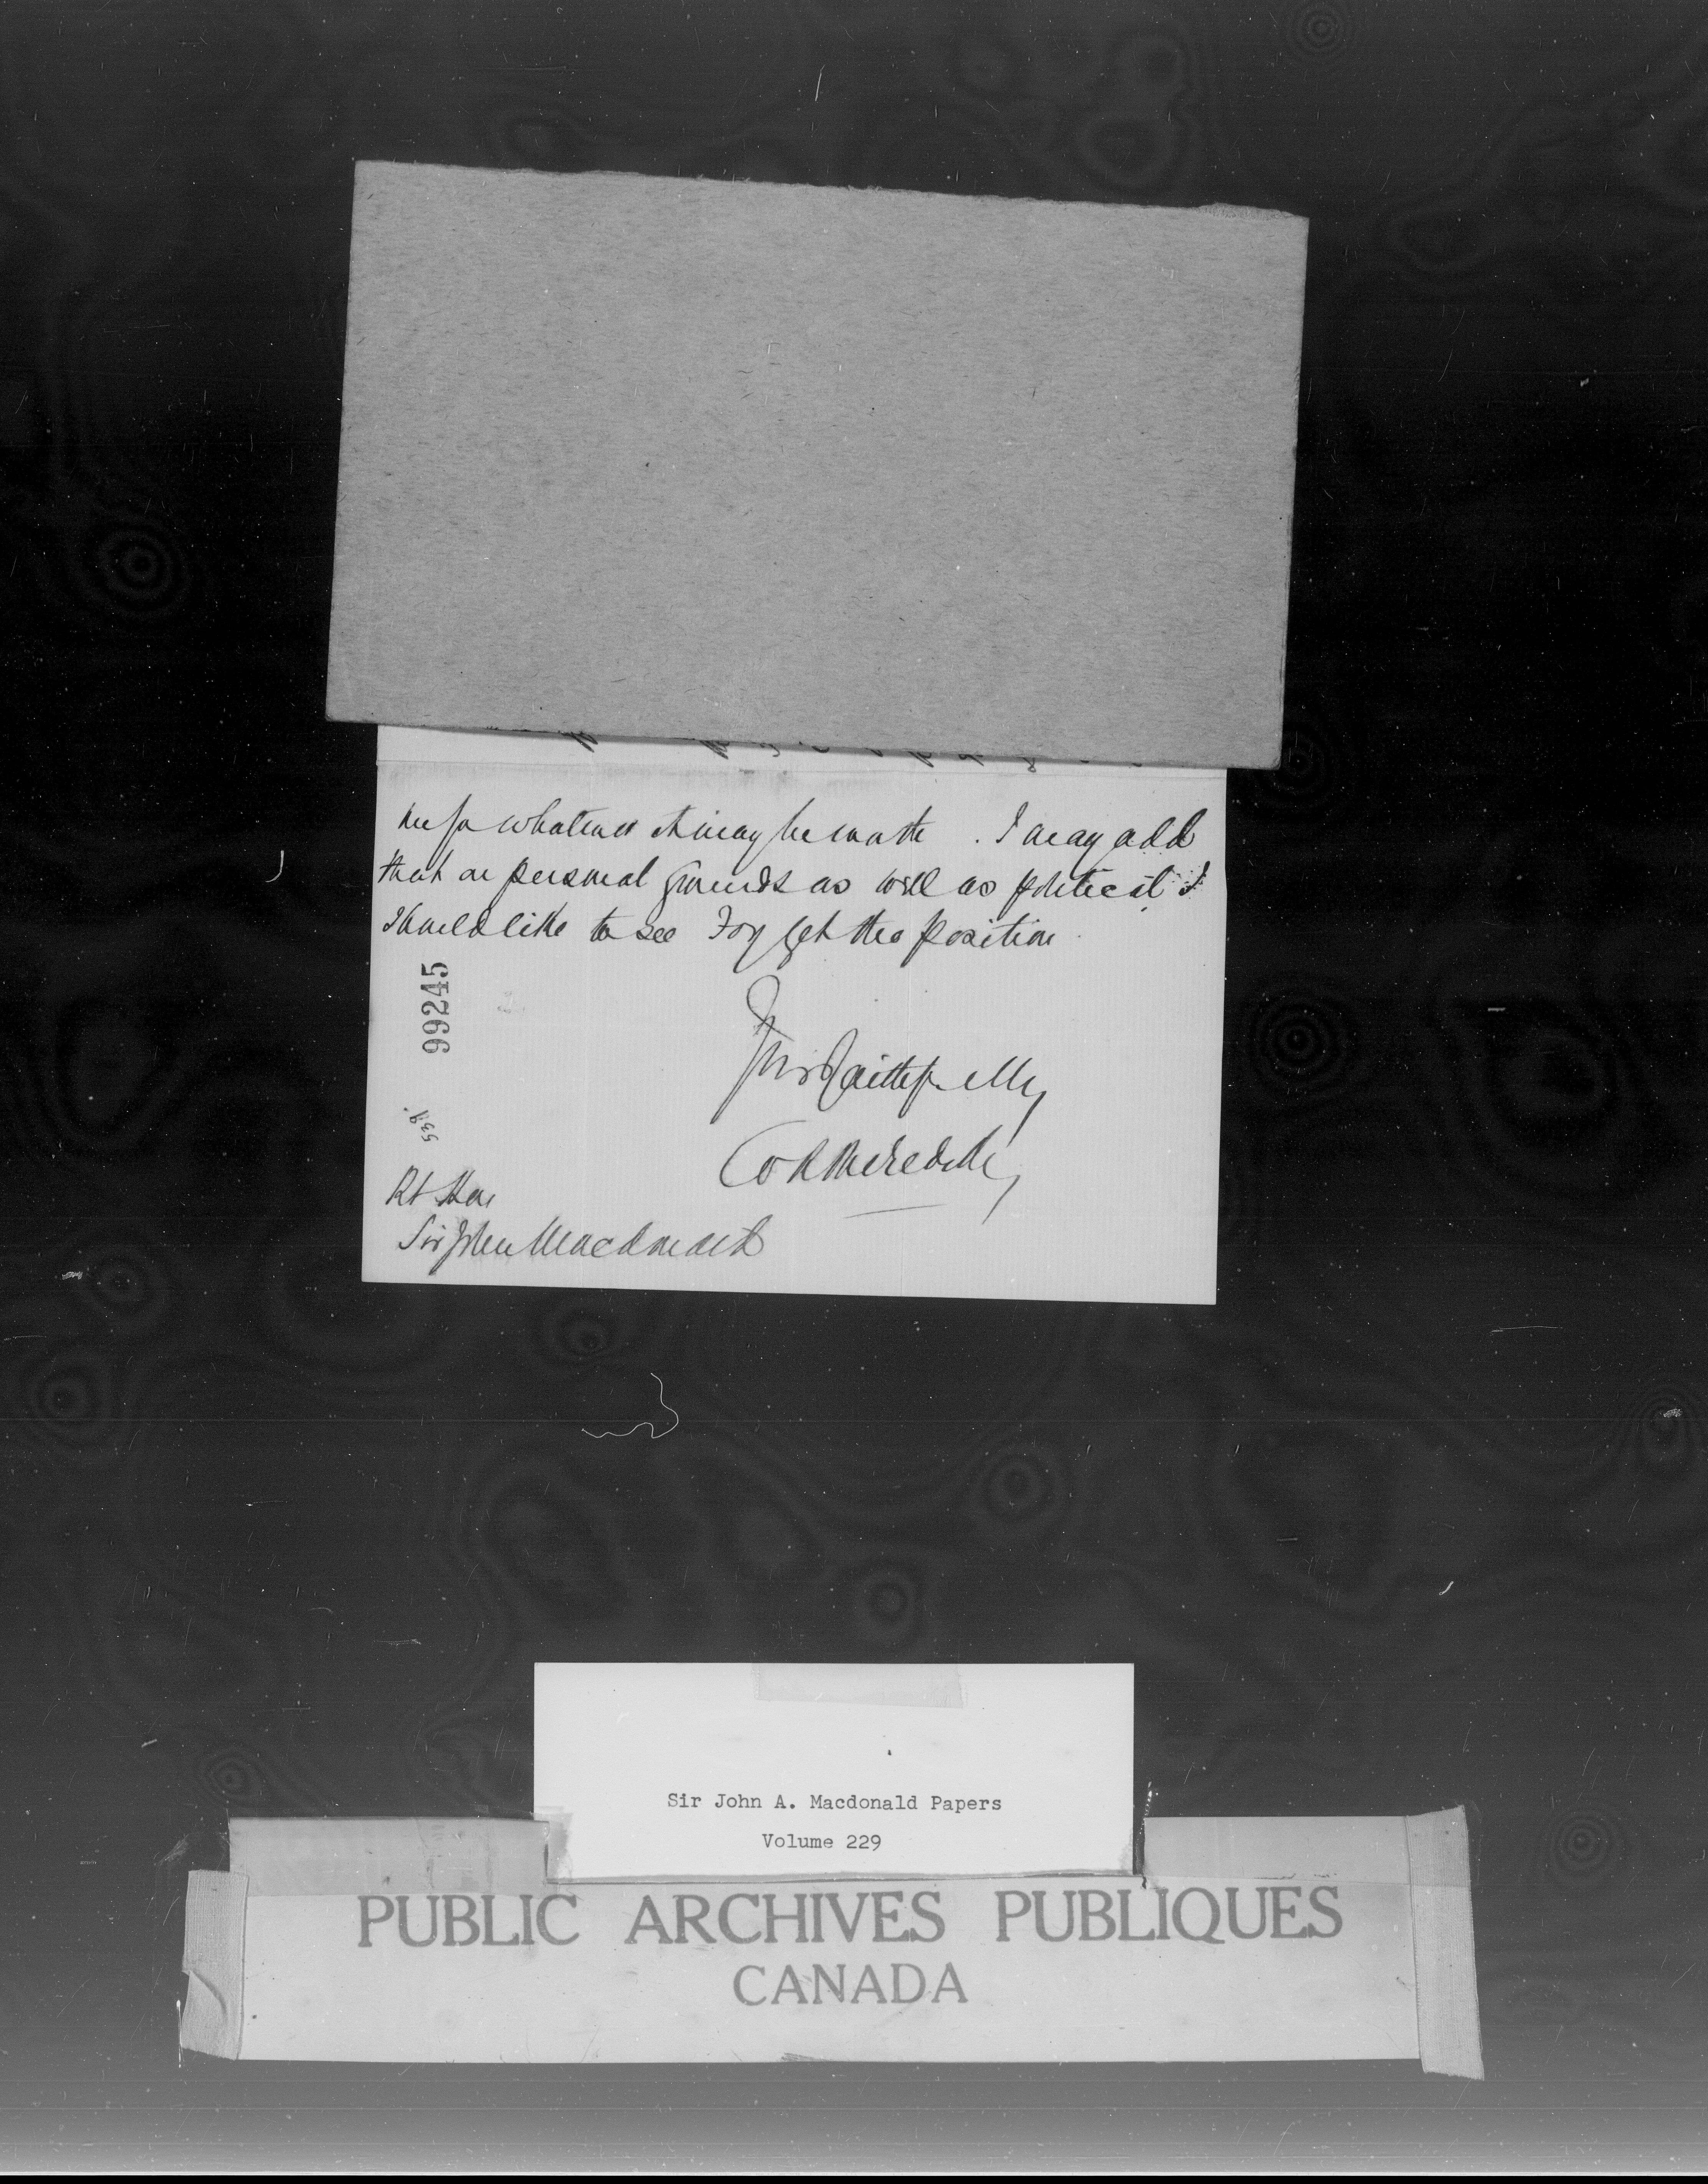 for whatever it may be worth. I may add
that on personal grounds as well as political I
should like to see Foy get the position.
99245
Yours faithfully
W R Meredith
Rt Hon
Sir John Macdonald
Sir John A. Macdonald Papers
Volume 229
PUBLIC ARCHIVES PUBLIQUES
CANADA